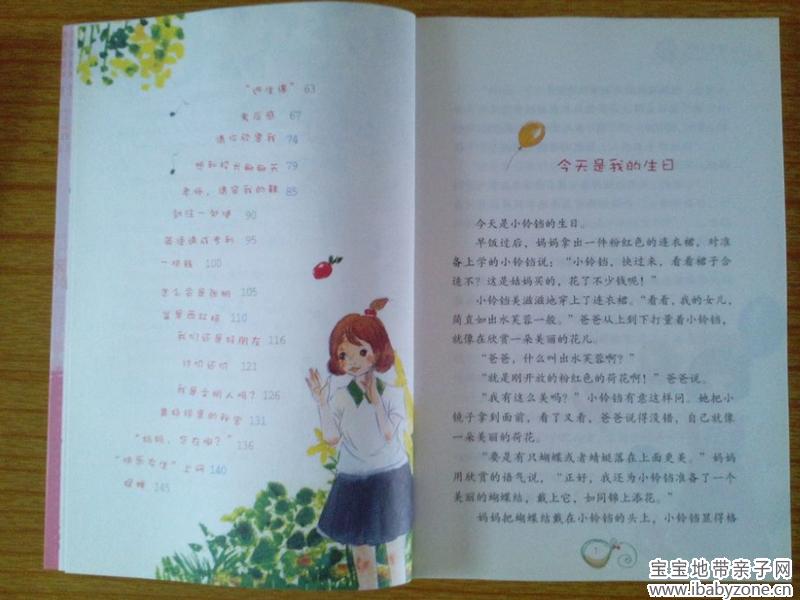 63
67
74
79
85
90
95
一块钱 100
怎么会是我啊 105
110
我们还是好朋友 116
讨价还价 121
我是文明人吗? 126
131
"妈妈,您在哪?" 136
"快乐女生"上网 140
145
今天是我的生日
今天是小铃铛的生日。
早饭过后,妈妈拿出一件粉红色的连衣裙,对准
备上学的小铃铛说:"小铃铛,快过来,看看裙子合
适不?这是姑妈买的,花了不少钱呢!"
小铃铛美滋滋地穿上了连衣裙。"看看,我的女儿,
简直如出水芙蓉一般。"爸爸从上到下打量着小铃铛,
就像在欣赏一朵美丽的花儿。
"爸爸,什么叫出水芙蓉啊?"
"就是刚开放的粉红色的荷花啊!"爸爸说。
"我有这么美吗?"小铃铛有意这样问。她把小
镜子拿到面前,看了又看,爸爸说得没错,自己就像
一朵美丽的荷花。
"要是有只蝴蝶或者蜻蜓落在上面更美。"妈妈
用欣赏的语气说,"正好,我还为小铃铛准备了一个
美丽的蝴蝶结,戴上它,如同锦上添花。"
妈妈把蝴蝶结戴在小铃铛的头上,小铃铛显得格
1
宝宝地带亲子网
www.ibabyzone.cn